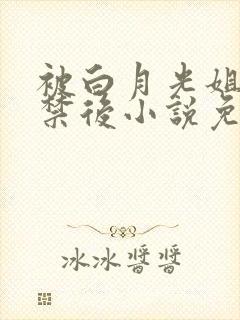 被白月光姐
禁後小說免
冰冰醬醬